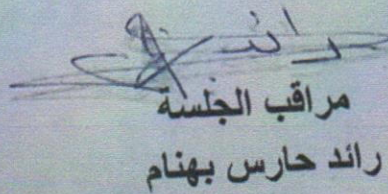 رائد
مراقب الجلسة
رائد حارس بهنام